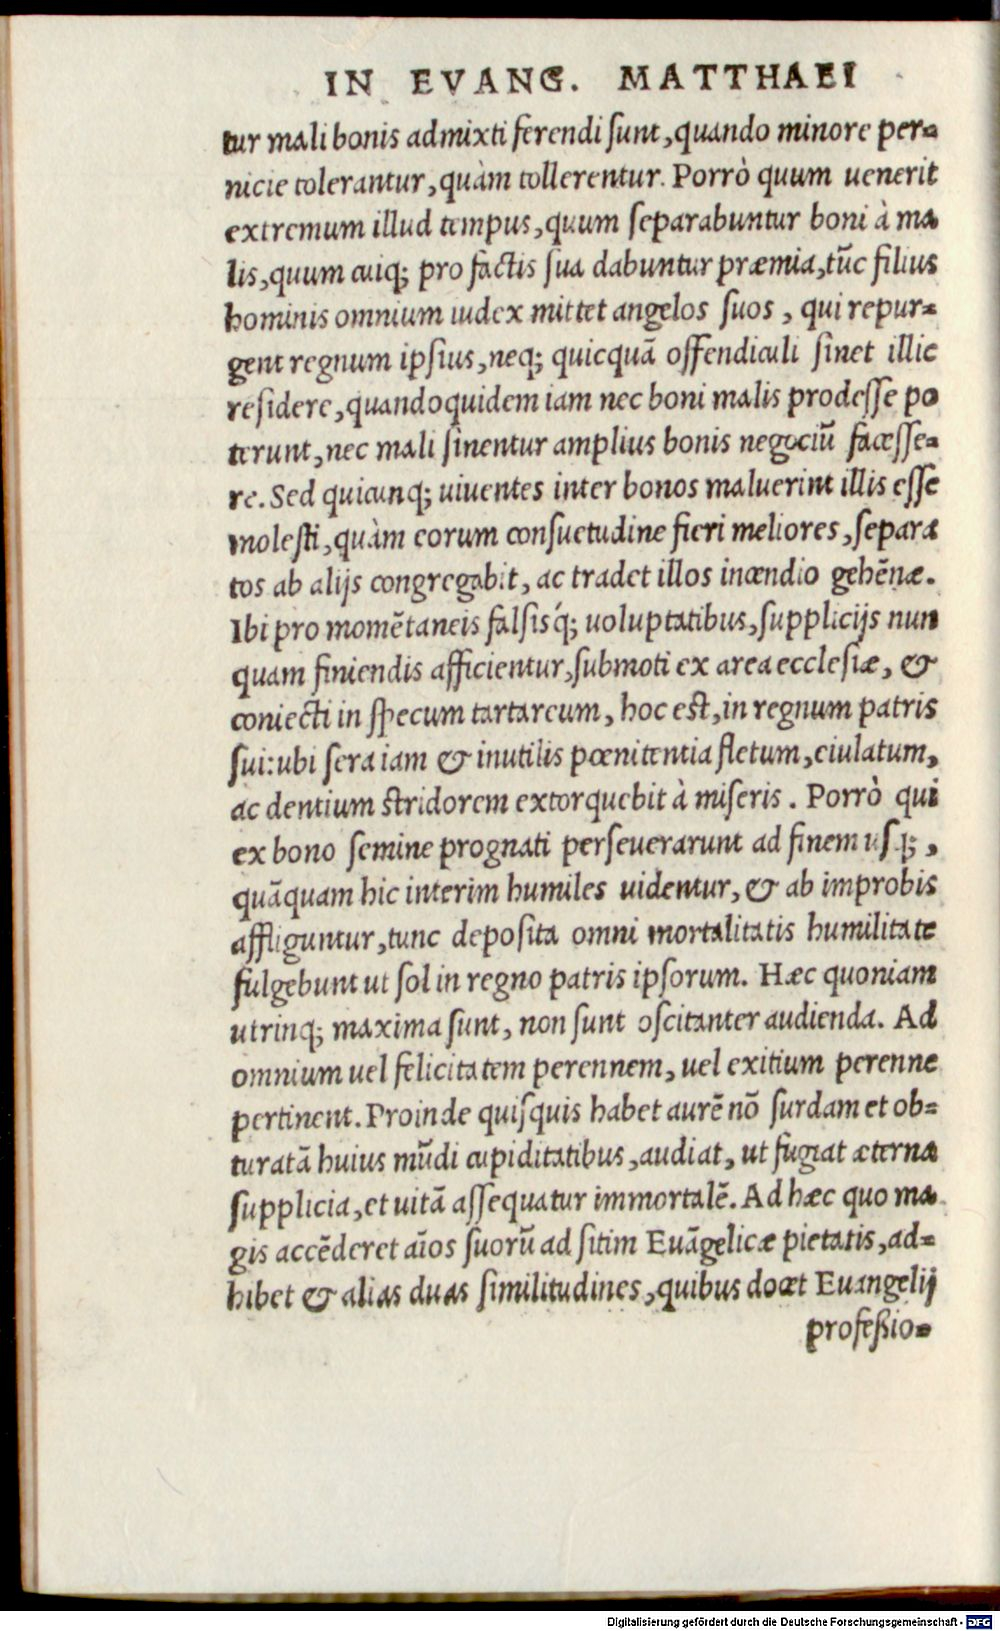 IN EVANG. MATTHAEI
tur mali bonis admixti ferendi ſunt, quando minore per=
nicie tolerantur, quàm tollerentur. Porrò quum uenerit
extremum illud tempus, quum ſeparabuntur boni à ma
lis, quum cuiq; pro factis ſua dabuntur præmia, tūc filius
hominis omnium iudex mittet angelos ſuos, qui repur=
gent regnum ipſius, neq; quicquā offendiculi ſinet illic
reſidere, quandoquidem iam nec boni malis prodeſſe po
terunt, nec mali ſinentur amplius bonis negociū faceſſe=
re. Sed quicunq; uiuentes inter bonos maluerint illis eſſe
moleſti, quàm eorum conſuetudine fieri meliores, ſepara
tos ab alijs congregabit, ac tradet illos incendio gehēnæ.
Ibi pro momētaneis falſisq́; uoluptatibus, ſupplicijs nun
quam finiendis afficientur, ſubmoti ex area eccleſiæ, &
coniecti in ſpecum tartareum, hoc eſt, in regnum patris
ſui: ubi ſera iam & inutilis pœnitentia fletum, eiulatum,
ac dentium ſtridorem extorquebit à miſeris. Porrò qui
ex bono ſemine prognati perſeuerarunt ad finem uſq;,
quāquam hic interim humiles uidentur, & ab improbis
affliguntur, tunc depoſita omni mortalitatis humilitate
fulgebunt ut ſol in regno patris ipſorum. Hæc quoniam
utrinq; maxima ſunt, non ſunt oſcitanter audienda. Ad
omnium uel felicitatem perennem, uel exitium perenne
pertinent. Proinde quiſquis habet aurē nō ſurdam et ob=
turatā huius mūdi cupiditatibus, audiat, ut fugiat æterna
ſupplicia, et uitā aſſequatur immortalē. Ad hæc quo ma
gis accēderet aīos ſuorū ad ſitim Euāgelicæ pietatis, ad=
hibet & alias duas ſimilitudines, quibus docet Euangelij
profeſſio=
Digitalisierung gefördert durch die Deutsche Forschungsgemeinschaft - DFG